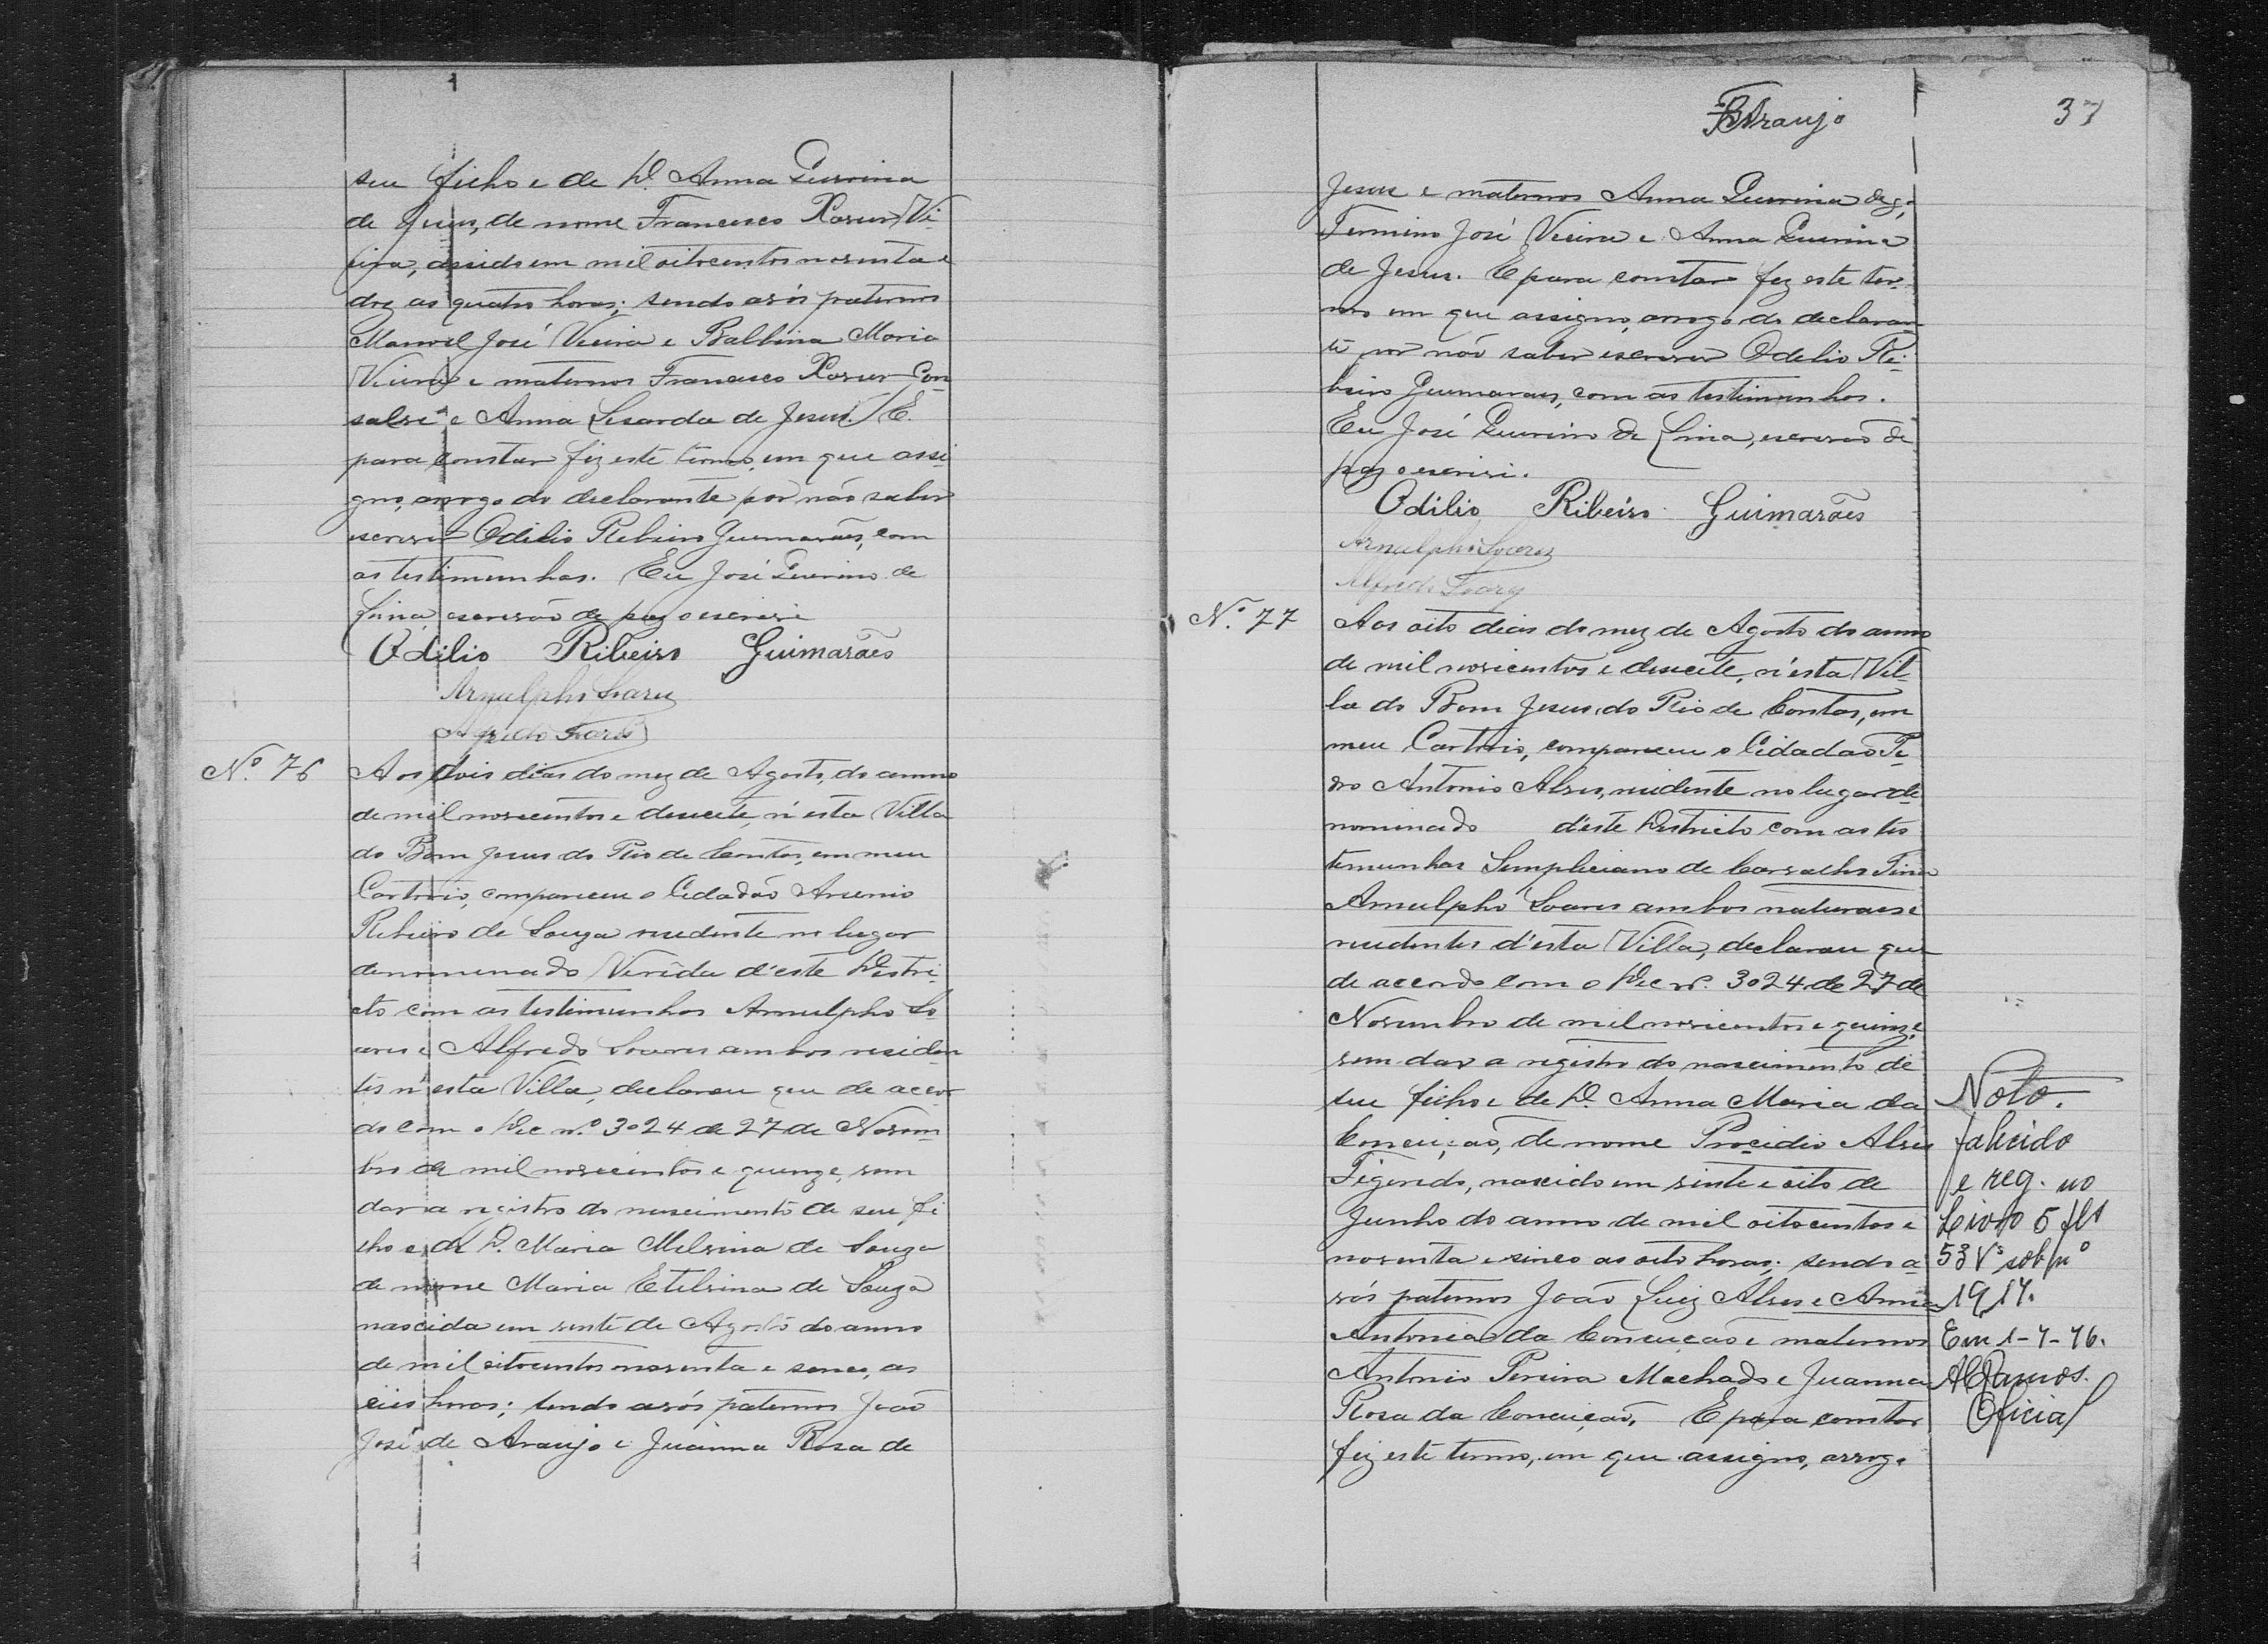 seu filho e de D. Anna Querina
de Jesus, de nome Francisco Xavier Vi-
eira, nascido em mil oitocentos noventa e
doz as quatro horas; sendo avós paternos
Manoel José Vieira e Balbina Maria
Vieira e maternos Francisco Xavier Gon
salves e Anna Lisarda de Jesus. E.
para constar fiz este termo, em que assi
gno, arrogo do declarante por não saber
escrever Odilio Ribeiro Guimarães, com
as testimunhas. Eu José Querino de
Lima, escrivão de paz o escrivi
Odilio Ribeiro Guimarães
Arnulpho Soares
Alfredo Soares
Nº 76
Aos dois dias do mez de Agosto, do anno
de mil novecentos e desecete, n'esta Villa
do Bom Jesus do Rio de Contas, em meu
Cartorio, compareceu o Cidadão Arsenio
Ribeiro de Souza residente no lugar
denominado Verêda d'este Distri-
cto com as testimunhas Arnulpho So
ares e Alfredo Soares ambos residen
tes n'esta Villa, declarou que de accor
do com o Dec nº 3024 de 27 de Novem
bro de mil novecentos e quinze, vem
dar a registro do nascimento de seu fi
lho e de D. Maria Melvina de Souza
de nome Maria Etelvina de Souza
nascida em vente de Agosto do anno
de mil oitocentos noventa e senco, as
seis horas; sendo avós paternos João
José de Araujo e Juanna Rosa de
Araujo
37
Jesus e maternos Anna Querina digo,
Firmino José Vieira e Anna Querina
de Jesus. E para constar fez este ter-
mo em que assigno, arrogo do declaran
te por não saber escrever Odelio Ri-
beiro Guimarães, com as testimunhas.
Eu José Querino de Lima, escrivão de
paz o escrivi.
Odilio Ribeiro Guimarães
Arnulpho Soares
Alfredo Soares
Nº 77
Aos oito dias do mez de Agosto do anno
de mil novecentos e desecete, n'esta Vil-
la do Bom Jesus do Rio de Contas, em
meu Cartorio, compareceu o Cidadão Pe-
dro Antonio Alves, residente no lugar de
nominado d'este Districto com as tes
temunhas Simpliciano de Carvalho
Arnulpho Soares ambos naturaes e
residentes d'esta Villa, declarou que
de accordo com o Dec nº. 3024 de 27 de
Novembro de mil novecentos e quinze
vem dar a registro do nascimento de
seu filho e de D. Anna Maria da
Conceição, de nome Procidio Alves
Figeredo, nascido em vinte e oito de
Junho do anno de mil oitocentos e
noventa e sinco as oito horas; sendo a-
vós paternos João Luiz Alves e Anna
Antonia da Conceição e maternos
Antonio Pereira Machado e Juanna
Rosa da Conceição. E para constar
fiz este termo, em que assigno, arrogo
Nota.
falecido
e reg. no
Livro 5 fls
53 Vº sob nº
1914.
Em 1-4-76.
Ramos.
Oficial